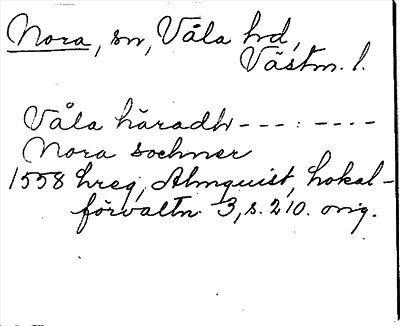 Nora, sn, Våla hd,
Västm. l.
Våla häradh - - - : - - - -
Nora sochner
1558 hreg, Almquist, Lokal-
förvaltn 3, s. 210. orig.